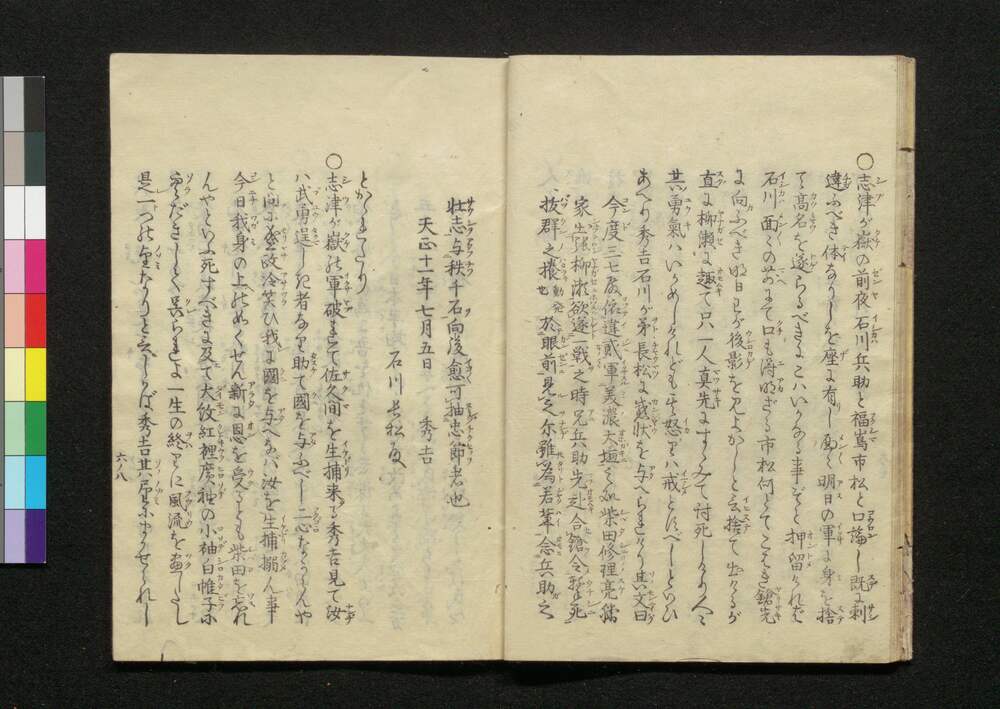 ○志津が嶽の前夜石川兵助と福嶌市松と口論し既に刺
違ふべき体なりしを座に有し面々明日の軍に身を捨
て高名を遂らるべきにこハいかなる事ぞと押留けれバ
石川面々の前にて口も得明ざる市松何とてこハき鎗先
に向ふべき明日わが後影を見よかしと云捨て出けるが
直に柳瀬に趣て只一人真先にすゝみて討死しけり人々
其勇氣ハいかめしけれども小怒ハ戒とすべしといひ
あへり秀吉石川が弟長松に感状を与へられけり其文曰
今度三七殿依違貳軍美濃大垣之処柴田修理亮
家出張柳瀬欲遂一戦之時兄兵助先赴合鎗令
抜群之働也於眼前見之尓雖為若輩念兵助之
壮志与秩千石向後愈可抽忠節者也
天正十一年七月五日 秀吉
石川長松殿
とかゝれたり
○志津が嶽の軍破れて佐久間を生捕来る秀吉見て汝
ハ武勇逞しき者なり助て國を与ふべし二心なからんや
と問に盛政冷笑ひ我に國を与へなバ汝を生捕搦ん事
今日我身の上のめくせん新に恩を受るとも柴田を忘れ
んやといふ死すべきに及て大紋紅裡廣袖の小袖白帷子
くだされしとく呉られよ一生の終りに風流を盡したし
是一つの望なりと云しかば秀吉其
六ノ八